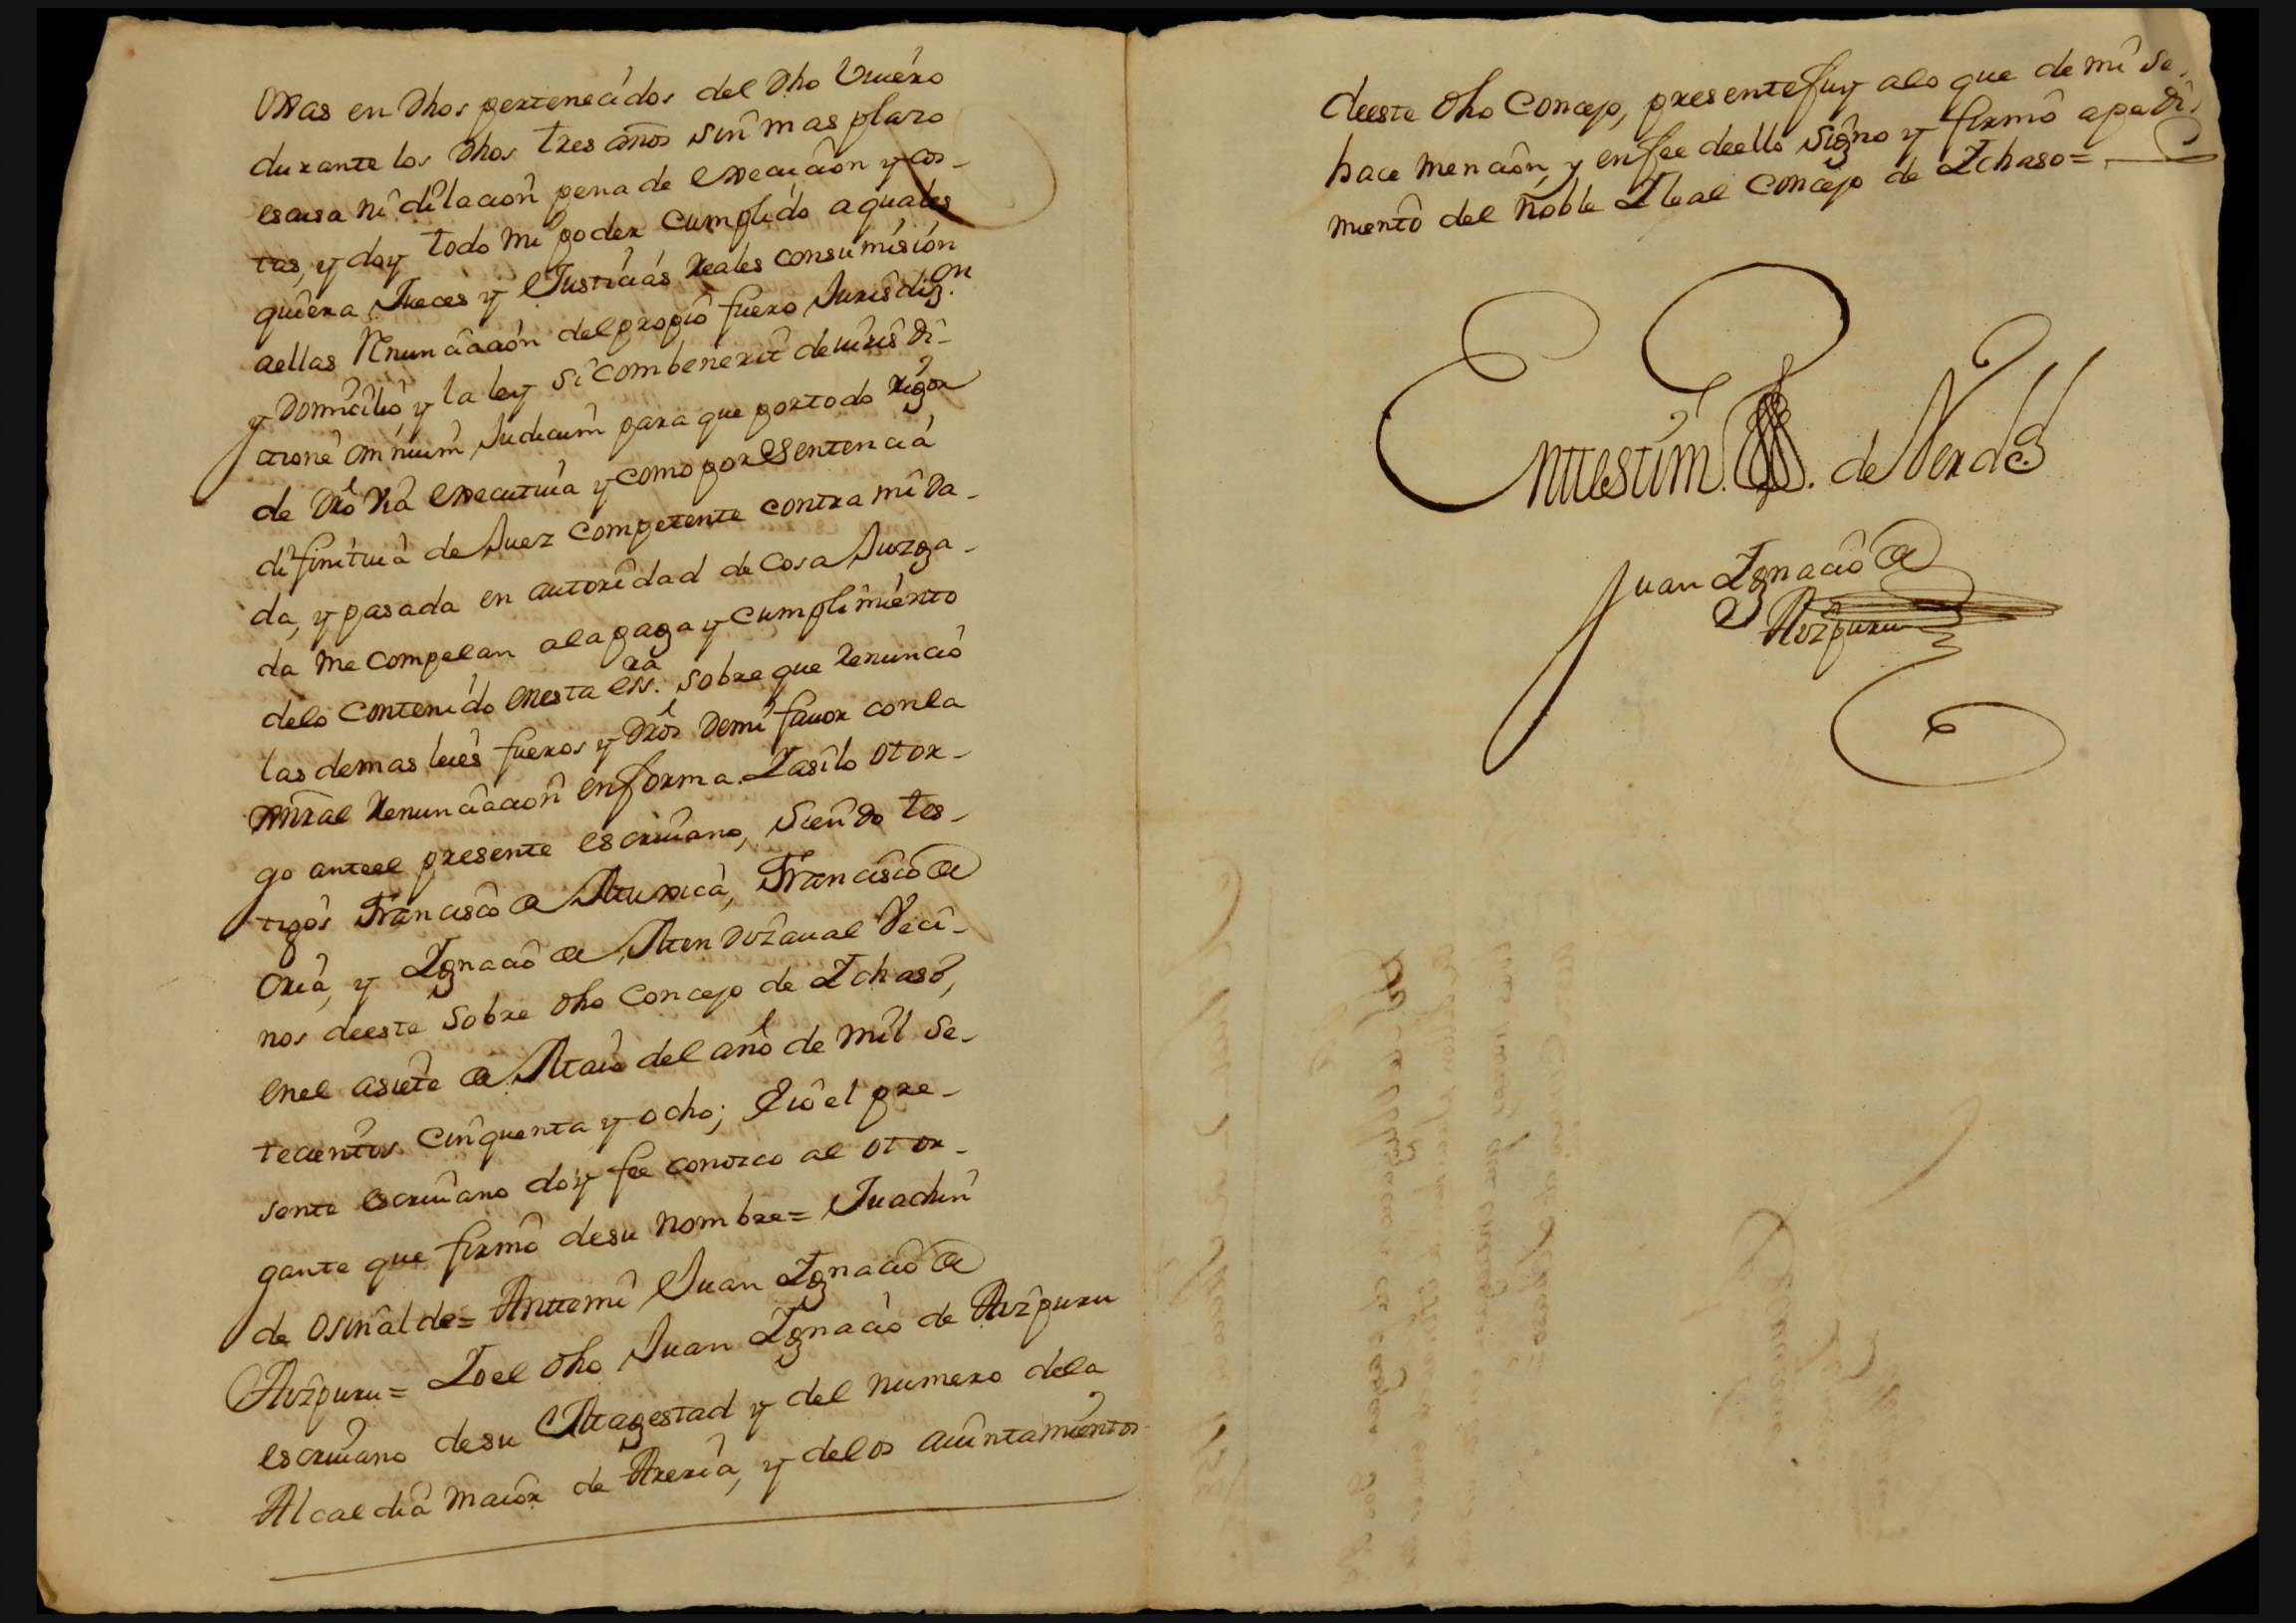 Oxas en dhos pertenecidos del dho Viuero
durante los dhos tres años sin mas plazo
escusa ni dilacion pena de execucion y cos-
tas, y doy todo mi poder cumplido a quales
quiera Jueces y Justicias Reales consumision
aellas Renunciacion del propio fuero Jurisdiz.on
y Domicilio, y la ley si combenerit de iuris di-
ctione omnium Judicum para que portodo rigor
de dro Via executiua y como por Sentencia
difinitiua de Juez competente contra mi da-
da, y pasada en autoridad de Cosa Juzga-
da me compelan ala paga y cumplimiento
delo contenido enesta ess.ra sobre que renuncio
las demas leies fueros y dros demi fauor conla
gnral renunciacion enforma. Iasilo otor-
go anteel presente escriuano, siendo tes-
tigos Francisco de Muxica, Francisco de
Oria, y Ignacio de Mendizaual Veci-
nos deeste sobre dho Concejo de Ichaso,
enel asiete de Maio del año de mil se-
tecientos cinquenta y ocho; Eio el pre-
sente escriuano doy fee conozco al otor-
gante que firmo desu nombre= Juachin
de Osinalde= Antemi Juan Ignacio de
Aizpuru= Ioel dho Juan Ignacio de Aizpuru
escriuano desu Magestad y del numero dela
Alcaldia maior de Areria, y delos aiuntamientos
deeste dho Concejo, presente fuy alo que de mi se
hace mencion, y enfee deello signo y firmo a pedi-
miento del Noble I leal Concejo de Ichaso=
Enttestim. de Verd.
Juan Ignacio de
Aizpuru